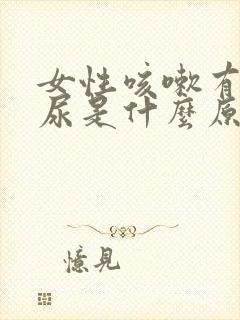 女性咳嗽有
尿是什麼原
憶見